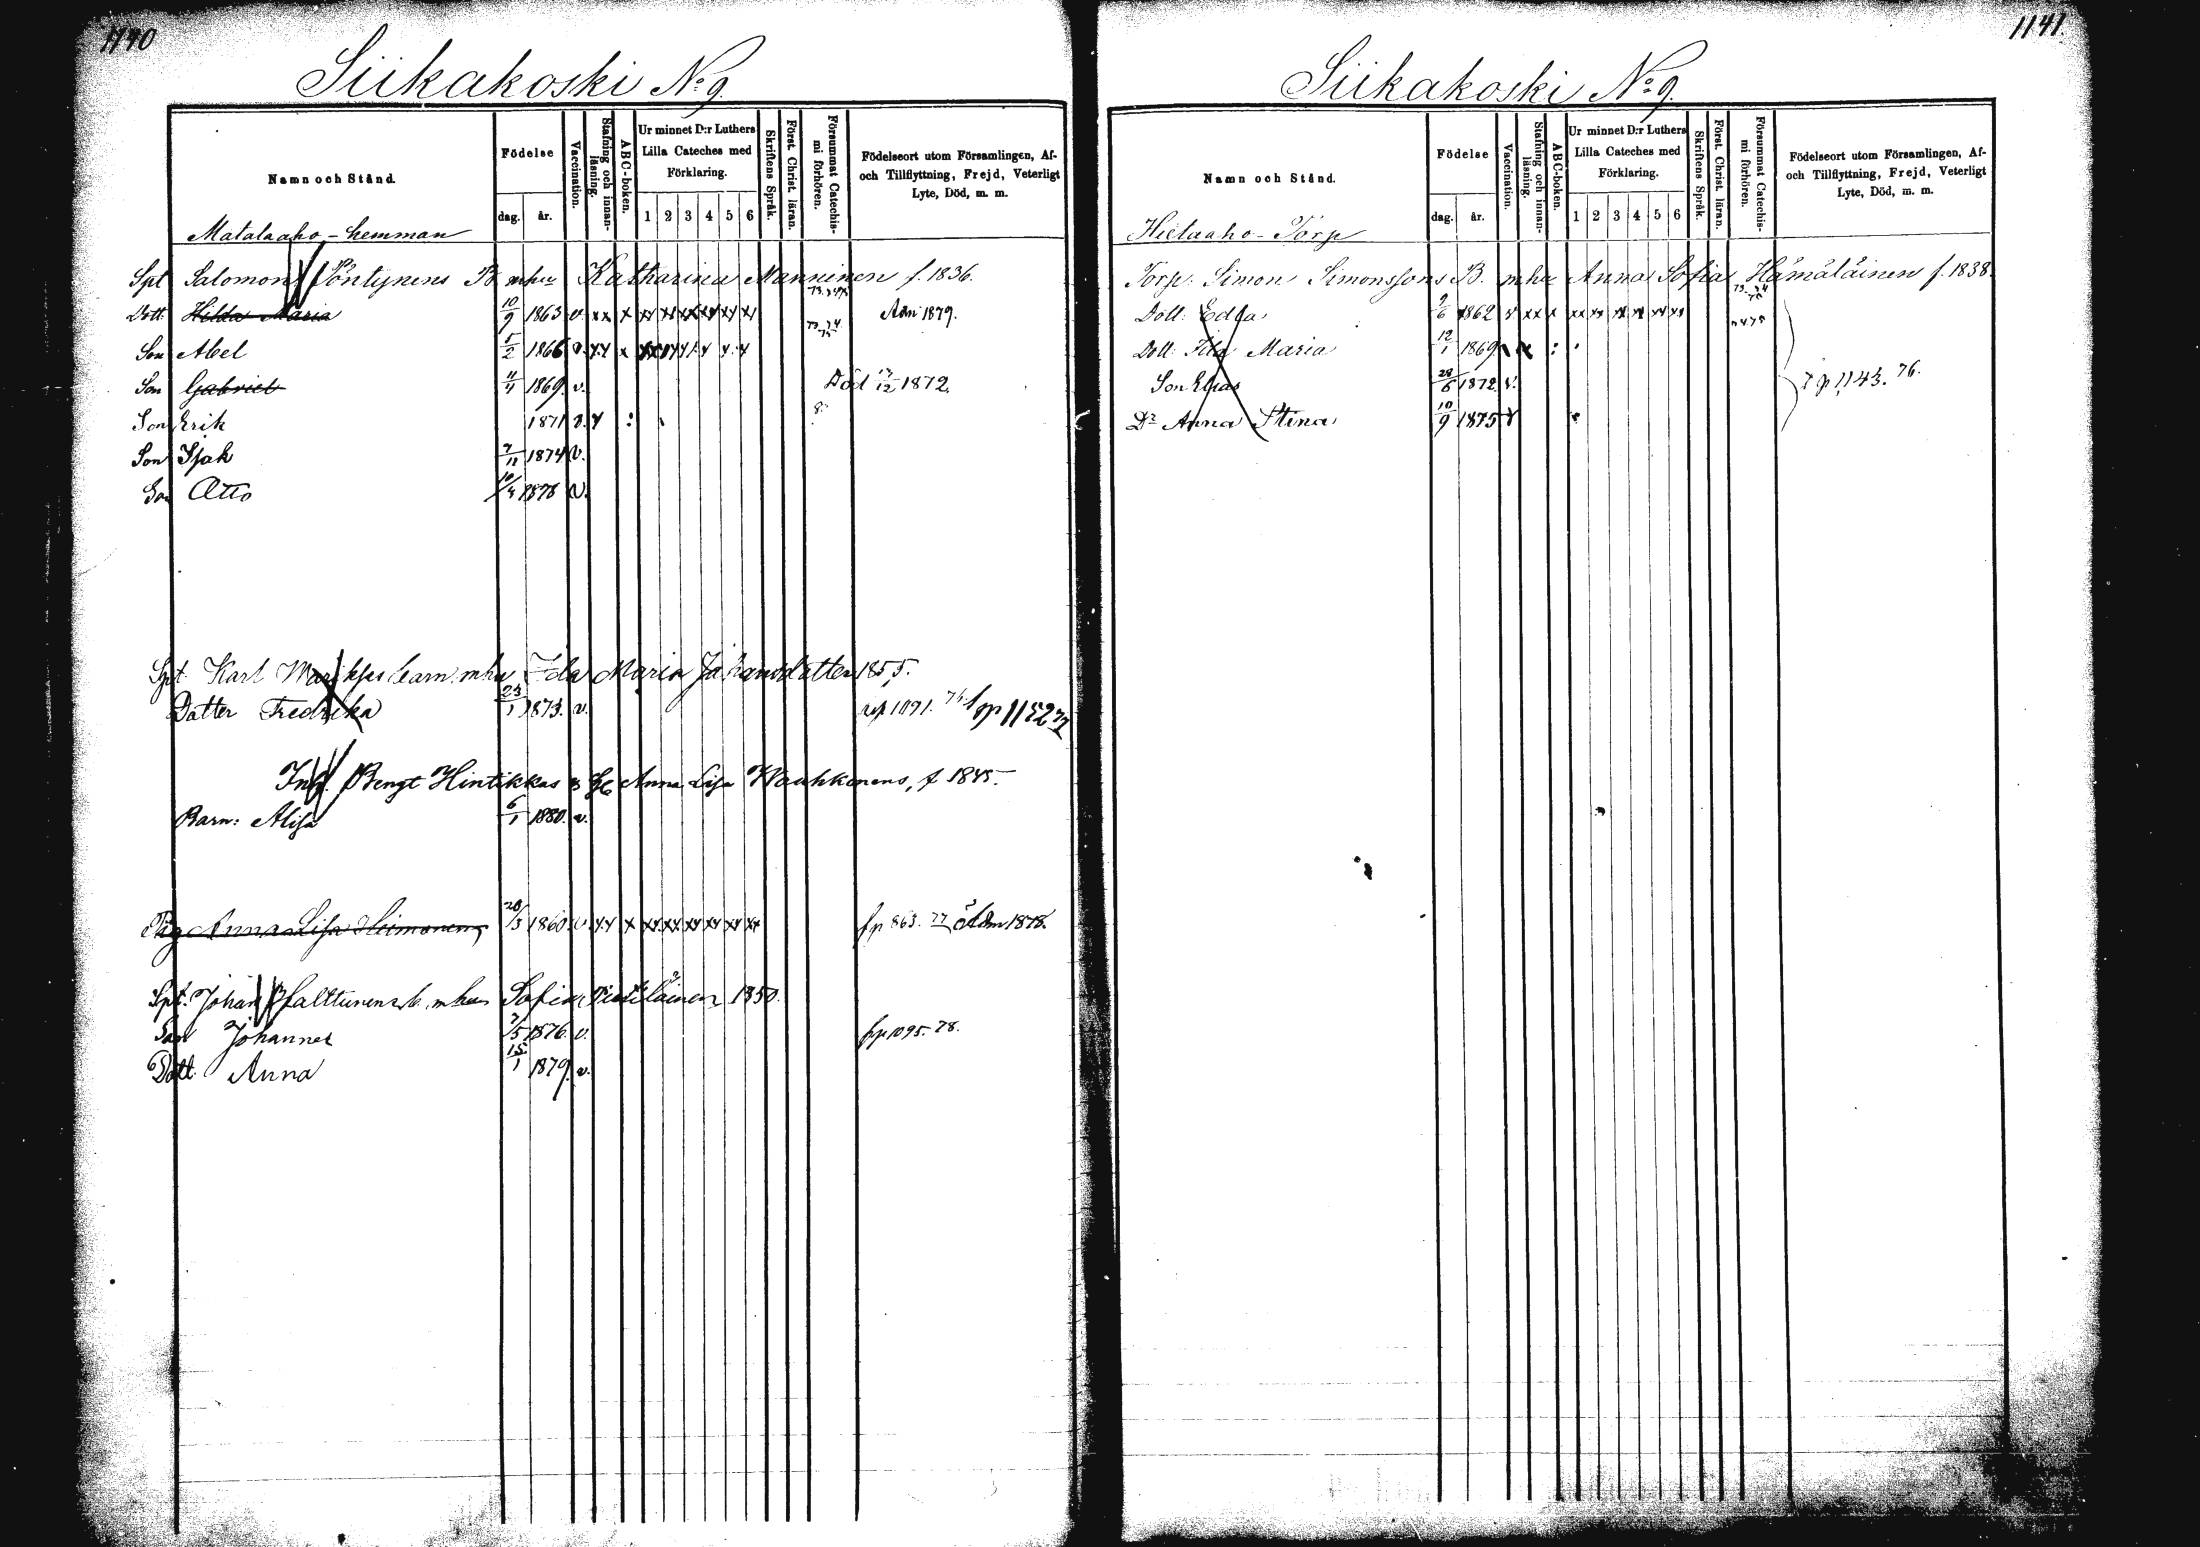 1140
Siikakoski No 9.
Namn och Stånd.
Födelse
dag.
år.
Vaccination.
Stafning och innan-
läsning.
ABC-boken.
Ur minnet D:r Luthers
Lilla Cateches med
Förklaring.
1 2 3 4 5 6
Skriftens Språk.
Först. Christ. läran.
Försummat Catechis-
mi förhören.
Födelseort utom Församlingen, Af-
och Tillflyttning, Frejd, Veterligt
Lyte, Död, m. m.
Matalaaho-hemman
Spt Salomon Pöntynens B mhu Katharina Manninen f. 1836.
Dott. Hilda Maria 10/9 1863 v. xx x xx xx xx xx xx xx Adm 1879.
Son Abel 5/2 1866 v.
Son Gabriel 4/4 1869. v. Död 13/12 1872.
Son Erik 1871 v.
Son Isak 7/11 1874 v.
Son Otto 10/4 1878 v.
Spt Karl barn. mhu Ida Maria Johansdotter 1855.
Dotter Fredrika 23/1 1873. v. 1091. 1152
Bengt Hintikkas Anna Lisa Wauhkonens, f 1845.
Barn: Alisa 6/1 1880. v.
Anna Lisa Hiimonen 20/3 1860 v. fp 863. 77 Adm 1878.
Spt. Johan Palttunens b. mhu Sofia 1850.
Son Johannes 7/5 1876. v. fp 1095. 78.
Dott. Anna 15/1 1879. v.
1141.
Siikakoski No 9.
Namn och Stånd.
Födelse
dag.
år.
Vaccination.
Stafning och innan-
läsning.
ABC-boken.
Ur minnet D:r Luthers
Lilla Cateches med
Förklaring.
1 2 3 4 5 6
Skriftens Språk.
Först. Christ. läran.
Försummat Catechis-
mi förhören.
Födelseort utom Församlingen, Af-
och Tillflyttning, Frejd, Veterligt
Lyte, Död, m. m.
Hietaaho-Torp
Torp. Simon Simonssons B. mhu Anna Sofia Hämäläinen f. 1838.
Dott: Edla 9/6 1862 v xx x xx xx xx xx xx xx
Dott: Ida Maria 12/1 1869
Son Elias 28/6 1872 v. p 1143. 76.
Dr Anna Stina 10/9 1875 v